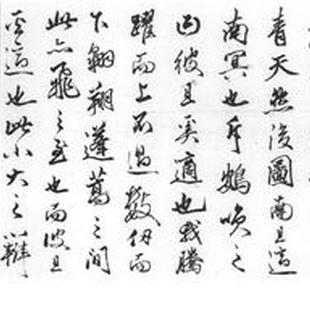 青天然後圖南且適
南冥也斥鴳咲之
曰彼且奚適也我騰
躍而上不過數仞而
下翱翔蓬蒿之間
此亦飛之至也而彼且
奚適也此小大之辯